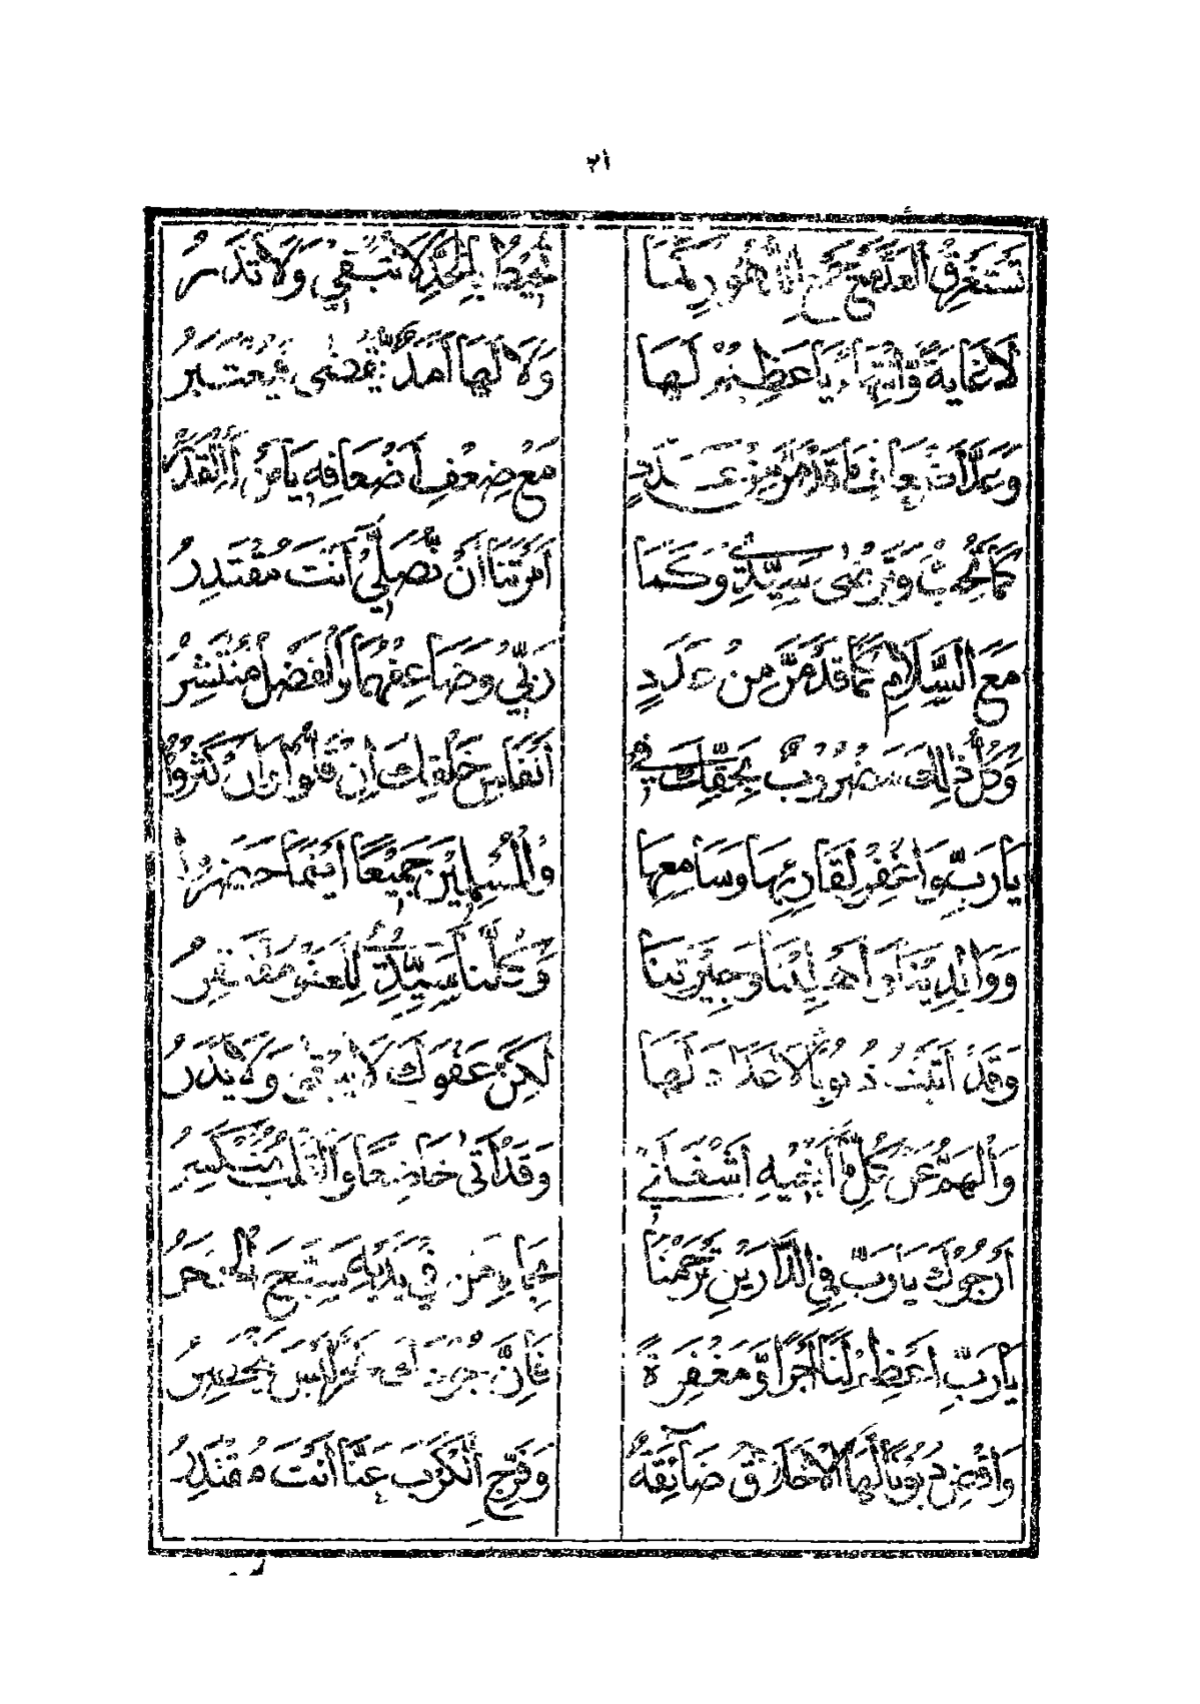 ٣١
تَسْتَغْرِقُ الْعَدَّ مَعَ جَمْعِ الدُّهُورِ كَمَا يُحِيطُ بِالْحَدِّ لَا تُبْقِي وَلَا تَذَرُ
لَا غَايَةً وَّانْتِهَاءً يَا عَظِيْمُ لَهَا وَلَا لَهَا أَمَدٌ يُّقْضٰى فَيُعْتَبَرُ
وَعَدَّ أَضْعَافِ مَا قَدْ مَرَّ مِنْ عَدَدٍ مَعْ ضِعْفِ أَضْعَافِهِ يَا مَنْ لَهُ الْقَدَرُ
كَمَا تُحِبُّ وَتَرْضٰى سَيِّدِيْ وَكَمَا أَمَرْتَنَا أَنْ نُّصَلِّيْ أَنْتَ مُقْتَدِرُ
مَعَ السَّلَامِ كَمَا قَدْ مَرَّ مِنْ عَدَدٍ رَبِّيْ وَضَاعِفْهُمَا وَالْفَضْلُ مُنْتَشِرُ
وَكُلُّ ذٰلِكَ مَضْرُوْبٌ بِحَقِّكَ فِيْ أَنْفَاسِ خَلْقِكَ إِنْ قَلُّوْا وَإِنْ كَثُرُوْا
يَا رَبِّ وَاغْفِرْ لِقَارِئِهَا وَسَامِعِهَا وَالْمُسْلِمِيْنَ جَمِيْعًا أَيْنَمَا حَضَرُوْا
وَوَالِدِيْنَا وَأَهْلِيْنَا وَجِيْرَتِنَا وَكُلُّنَا سَيِّدِيْ لِلْعَفْوِ مُفْتَقِرُ
وَقَدْ أَتَيْتُ ذُنُوْبًا لَا عِدَادَ لَهَا لٰكِنَّ عَفْوَكَ لَا يُبْقِيْ وَلَا يَذَرُ
وَالْهَمُّ عَنْ كُلِّ مَا أَبْغِيْهِ أَشْغَلَنِيْ وَقَدْ أَتٰى خَاضِعًا وَالْقَلْبُ مُنْكَسِرُ
أَرْجُوْكَ يَا رَبِّ فِي الدَّارَيْنِ تَرْحَمُنَا بِجَاهِ مَنْ فِيْ يَدَيْهِ سَبَّحَ الْحَجَرُ
يَا رَبِّ أَعْظِمْ لَنَا أَجْرًا وَّمَغْفِرَةً فَإِنَّ جُوْدَكَ بَحْرٌ لَيْسَ يَنْحَصِرُ
وَاقْضِ دُيُوْنًا لَهَا الْأَخْلَاقُ ضَائِقَةٌ وَفَرِّجِ الْكَرْبَ عَنَّا أَنْتَ مُقْتَدِرُ